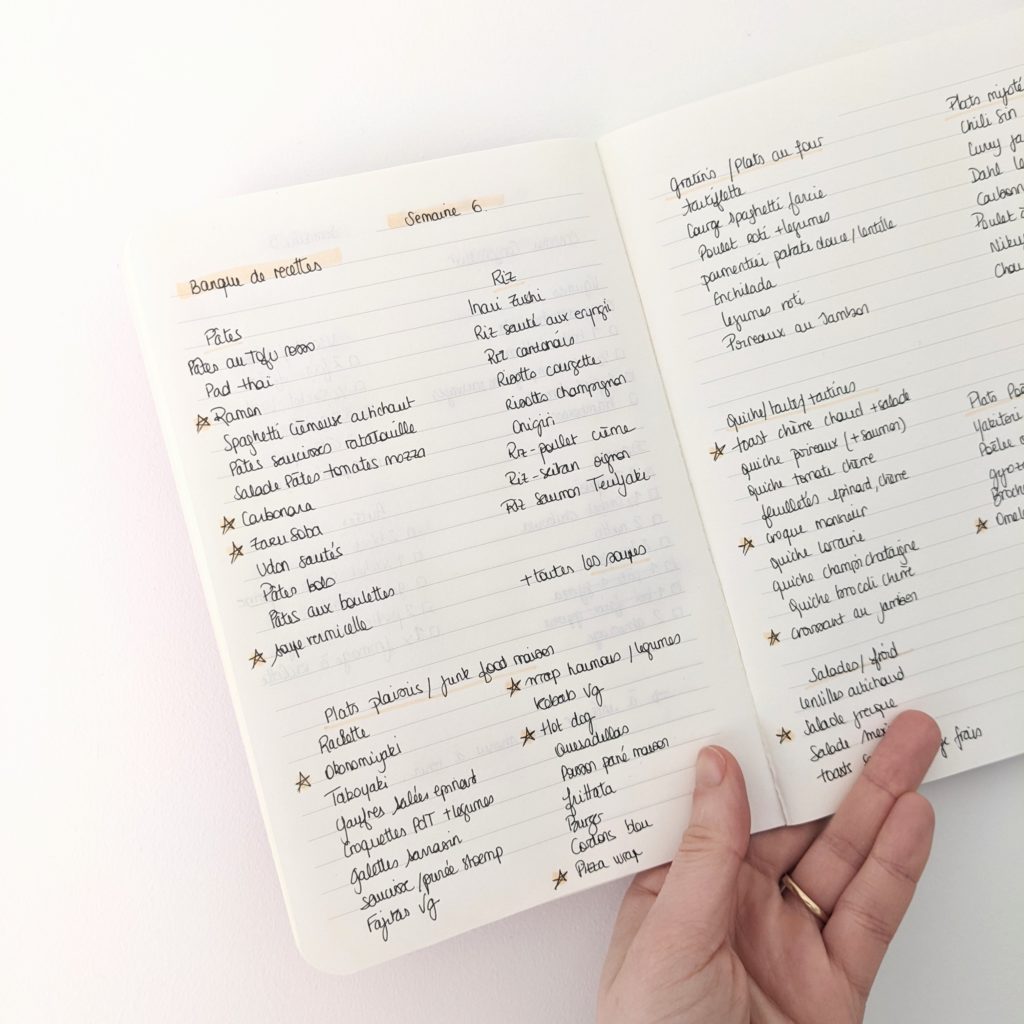 Semaine 6.
Banque de recettes
Pâtes
Pâtes au Tofu
Pad thai
☆ Ramen
Spaghetti crèmeuse artichaut
Pâtes saucisses ratatouille
Salade Pâtes tomates mozza
☆ Carbonara
☆ Zaru Soba
Udon sautés
Pâtes bolo
Pâtes aux boulettes
☆ soupe vermicelle
Riz
Inari Zushi
Riz sauté aux eryngii
Riz cantonais
Risotto courgette
Risotto champignon
Onigiri
Riz-poulet crème
Riz-seitan oignon
Riz saumon Teriyaki
+ toutes les soupes
Plats plaisirs / junk food maison
Raclette
☆ Okonomiyaki
Takoyaki
Gaufres salées epinard
Croquettes PdT + légumes
Galettes sarrasin
saucisse / purée stoemp
Fajitas Vg
☆ wrap houmous / légumes
Kebab Vg
☆ Hot dog
Quesadillas
Poisson pané maison
frittata
Burger
Cordons bleu
☆ Pizza wrap
Gratins / Plats au four
tartiflette
Courge spaghetti farcie
Poulet roti + légumes
parmentier patate douce / lentille
Enchilada
legumes roti
Poireaux au Jambon
Plats mijoté
Chili Sin
Curry Ja
Dahl le
Carbonn
Poulet
Niku
Chou
Quiche/tarte/tartines
☆ toast chèvre chaud + salade
quiche poireaux (+ saumon)
quiche tomate chèvre
feuilletés epinard, chèvre
☆ croque monsieur
quiche lorraine
quiche champi chataigne
Quiche brocoli chèvre
☆ croissant au jambon
Plats Poê
Yakitori
Poêlée
gyoza
Broche
☆ Omel
Salades/froid
lentilles artichaud
☆ Salade grecque
Salade mexi
toasts
frais